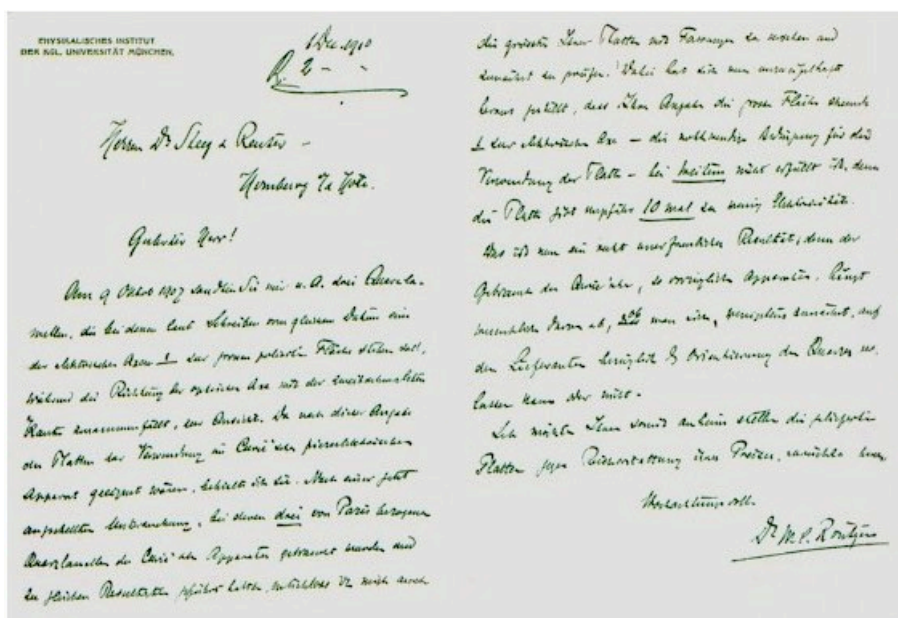 PHYSIKALISCHES INSTITUT
DER KGL. UNIVERSITÄT MÜNCHEN.
1 Dec. 1910
R. 2 – -
Herrn Dr Steeg & Reuter –
Homburg v/d Höhe.
Geehrter Herr!
Am 9 Oktob 1907 sandten Sie mir u. A. drei Quarzla-
mellen, die bei denen laut Schreiben vom gleichen Datum eine
der elektrischen Axen ⊥ zur grossen polirten Fläche stehen soll,
während die Richtung der optischen Axe mit der zweitschmalsten
Kante zusammenfällt, zur Ansicht. Da nach dieser Angabe
die Platten zur Verwendung im Curie'schen piezoelektrischen
Apparat geeignet wären, behielt ich sie. Nach einer jetzt
angestellten Untersuchung, bei denen drei von Paris bezogene
Quarzlamellen des Curie'schen Apparates gebraucht wurden und
zu gleichen Resultaten geführt haben, entschloss ich mich auch
die grösste Ihrer Platten mit Fassungen zu versehen und
zunächst zu prüfen. Dabei hat sich nun unzweifelhaft
heraus gestellt, dass Ihre Angabe die grosse Fläche stehe
⊥ zur elektrischen Axe – die nothwendige Bedingung für die
Verwendung der Platte – bei weitem nicht erfüllt ist, denn
die Platte gibt ungefähr 10 mal zu wenig Elektricität.
Das ist nun ein recht unerfreuliches Resultat; denn der
Gebrauch des Curie'schen, so vorzüglichen Apparates, hängt
wesentlich davon ab, ob man sich, wenigstens zunächst, auf
den Lieferanten bezüglich der Orientierung des Quarzes ver-
lassen kann oder nicht.
Ich möchte Ihnen somit anheim stellen die gelieferten
Platten gegen Rückerstattung ihres Preises, zurückzu
Hochachtungsvoll.
Dr W. C. Röntgen